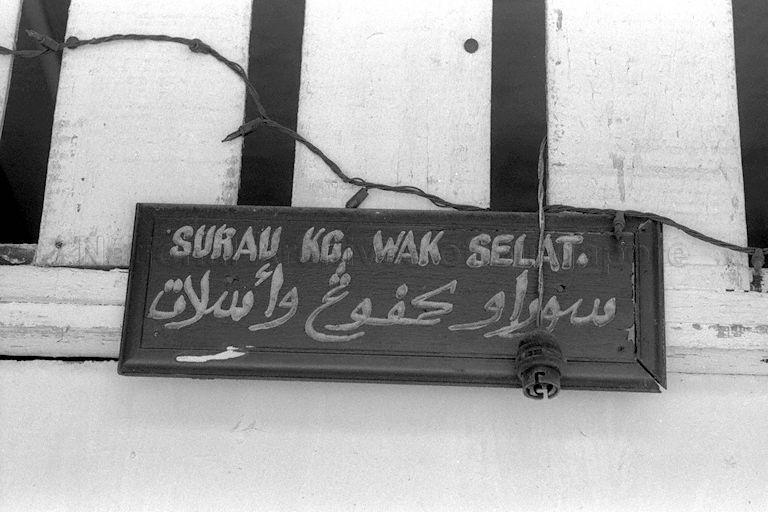 SURAU KG. WAK SELAT.
سوراو كمفوڠ وأ سلات